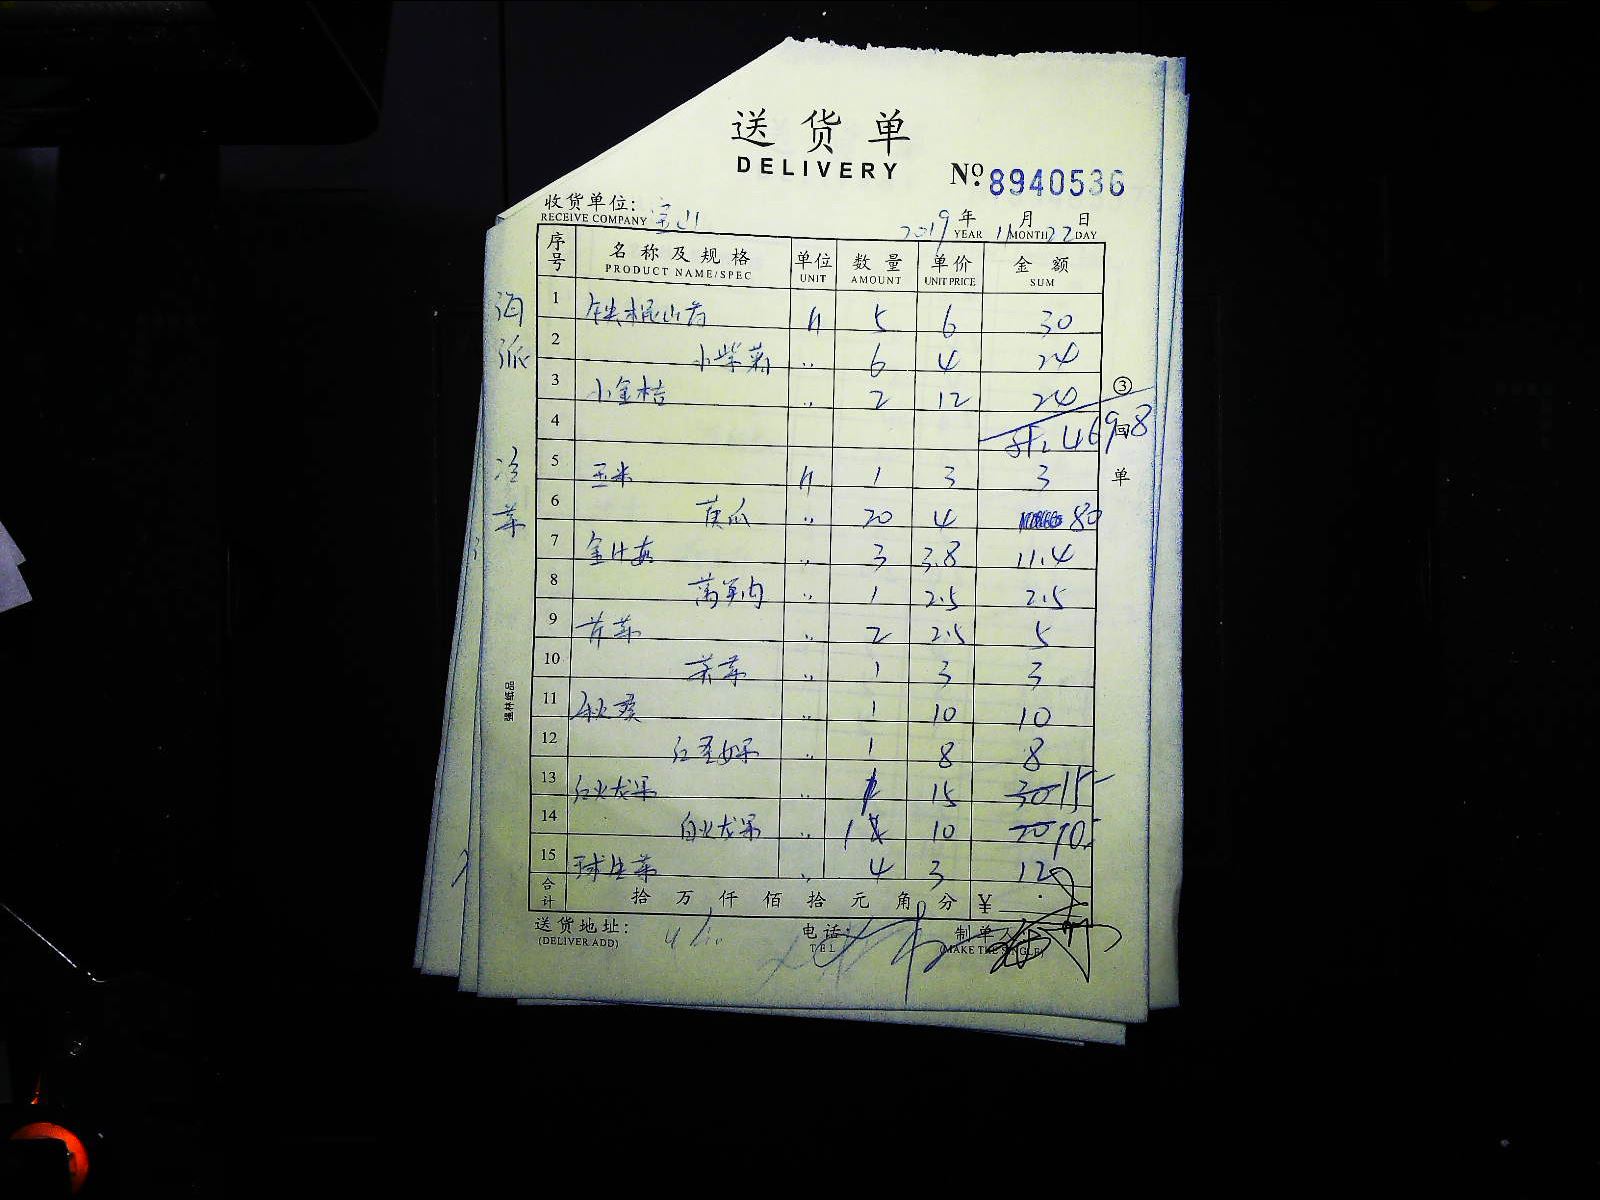 送货单
DELIVERY
№ 8940536
收货单位: 宝山
RECEIVE COMPANY
2019 年 11 月 22 日
YEAR MONTH DAY
序号 名称及规格 单位 数量 单价 金额
PRODUCT NAME/SPEC UNIT AMOUNT UNIT PRICE SUM
1 铁棍山药 斤 5 6 30
2 小柴菊 〃 6 4 24
3 小金桔 〃 2 12 24
4 469.8
5 玉米 斤 1 3 3
6 黄瓜 〃 20 4 80
7 金针菇 〃 3 3.8 11.4
8 莴笋肉 〃 1 2.5 2.5
9 芹菜 〃 2 2.5 5
10 苦菜 〃 1 3 3
11 秋葵 〃 1 10 10
12 红圣女果 〃 1 8 8
13 红火龙果 1 15 30 15
14 白火龙果 〃 1 10 20 10
15 球生菜 〃 4 3 12
合计 拾 万 仟 佰 拾 元 角 分 ¥
送货地址:
(DELIVER ADD)
电话:
TEL
制单人:
(MAKE THE SINGLE)
海派
冷菜
强林纸品
③
回单